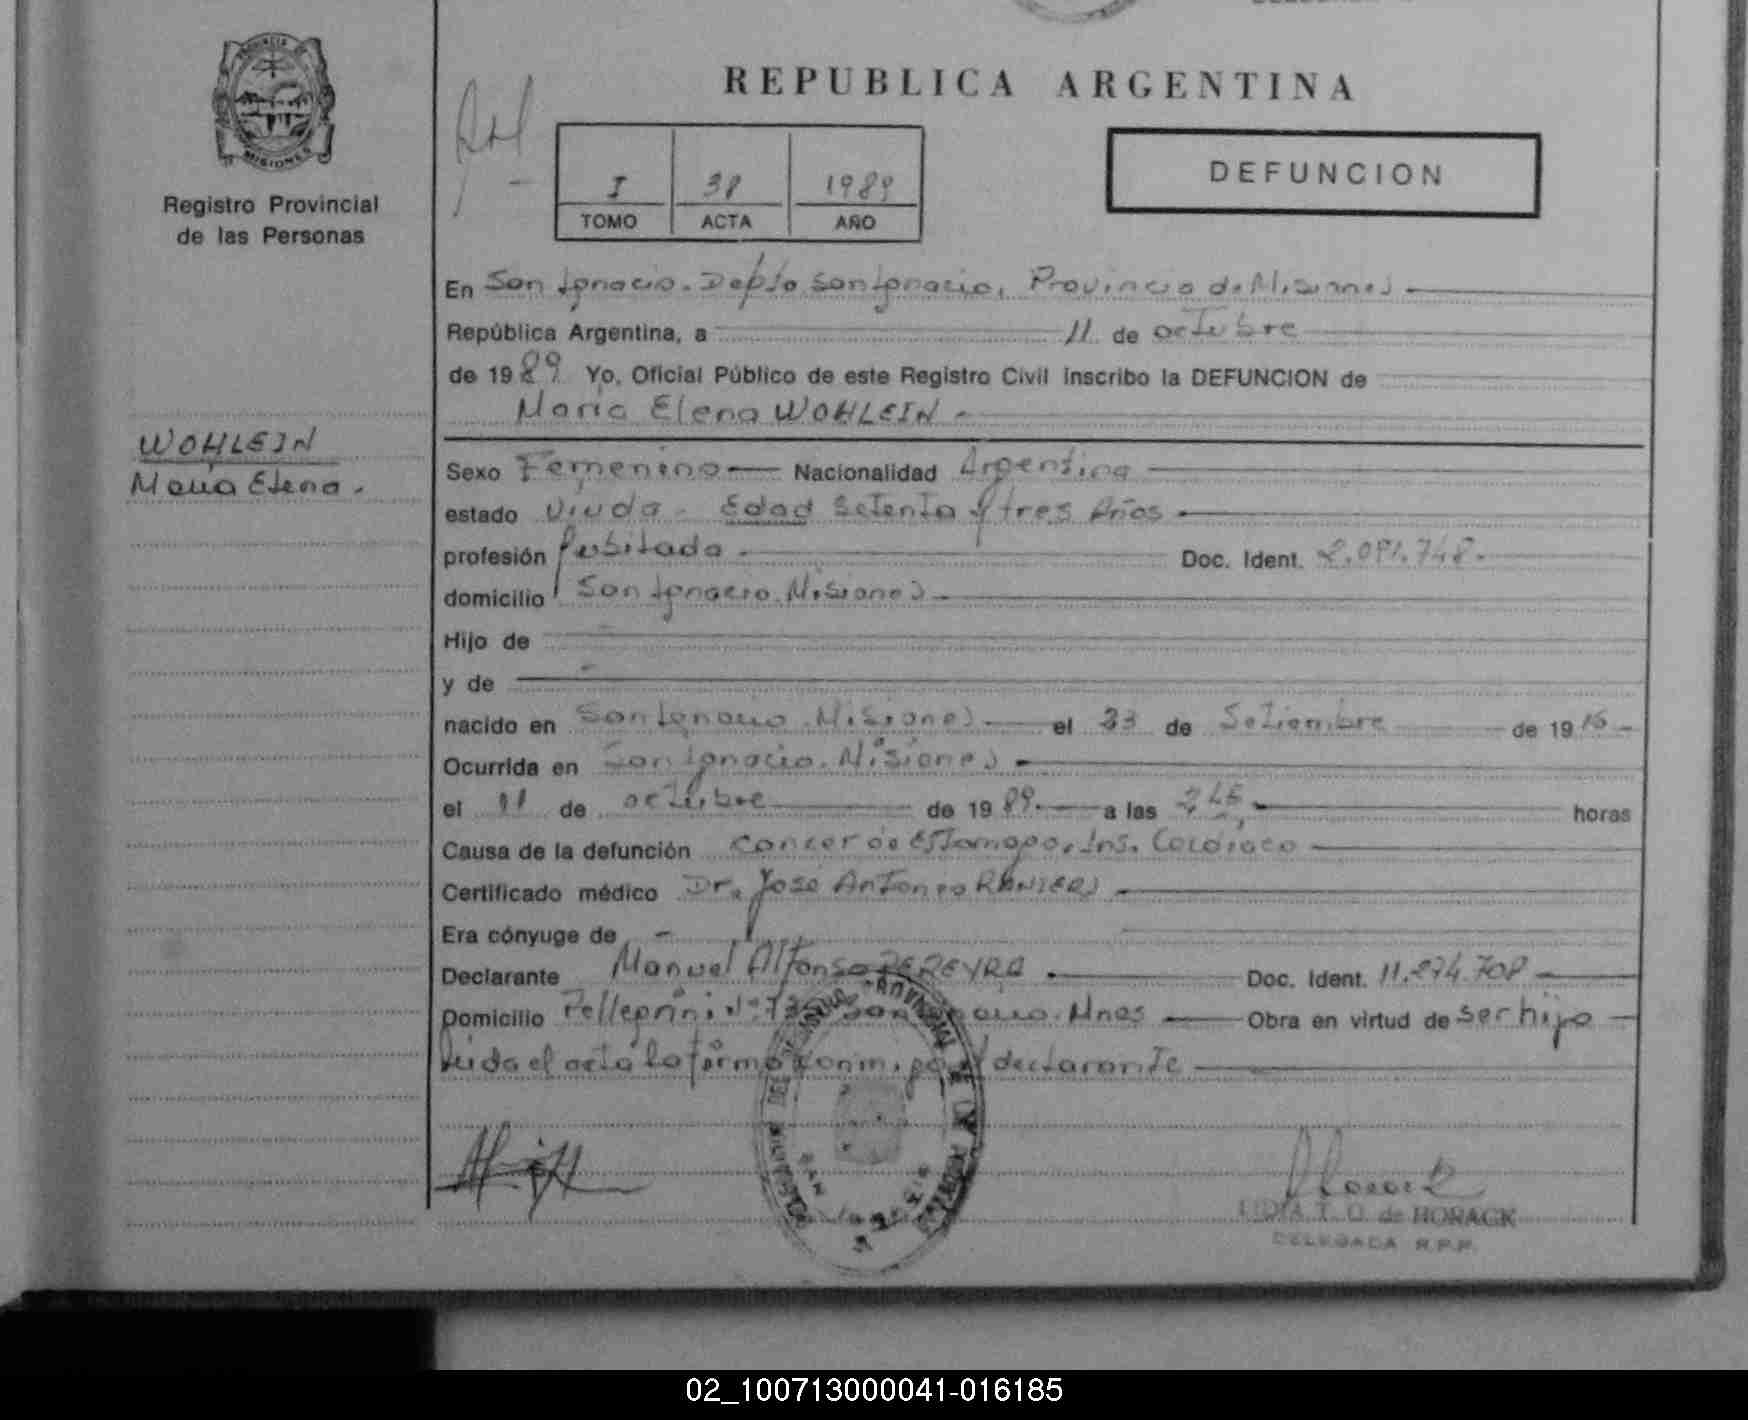 PROVINCIA DE
MISIONES
Registro Provincial
de las Personas
WOHLEIN
Maria Elena.
REPUBLICA ARGENTINA
I 38 1989
TOMO ACTA AÑO
DEFUNCION
En San Ignacio. Depto San Ignacio, Provincia de Misiones
República Argentina, a 11 de octubre
de 1989 Yo, Oficial Público de este Registro Civil inscribo la DEFUNCION de
Maria Elena WOHLEIN
Sexo Femenino Nacionalidad Argentina
estado Viuda - Edad Setenta y tres Años
profesión Jubilada. Doc. Ident. 2.091.748.
domicilio San Ignacio. Misiones
Hijo de
y de
nacido en San Ignacio. Misiones el 23 de Setiembre de 1916
Ocurrida en San Ignacio. Misiones
el 11 de octubre de 1989. a las horas
Causa de la defunción Cancer de Estomago, Ins. Cardiaca
Certificado médico Dr. José Antonio RANIERI
Era cónyuge de -
Declarante Manuel Alfonso PEREYRA Doc. Ident. 11.274.708
Domicilio Pellegrini Nº San Ignacio. Mnes Obra en virtud de ser hijo
Leida el acta la firma conm. por declarante
LIDIA T. O. de HORACK
DELEGADA R.P.P.
02_100713000041-016185